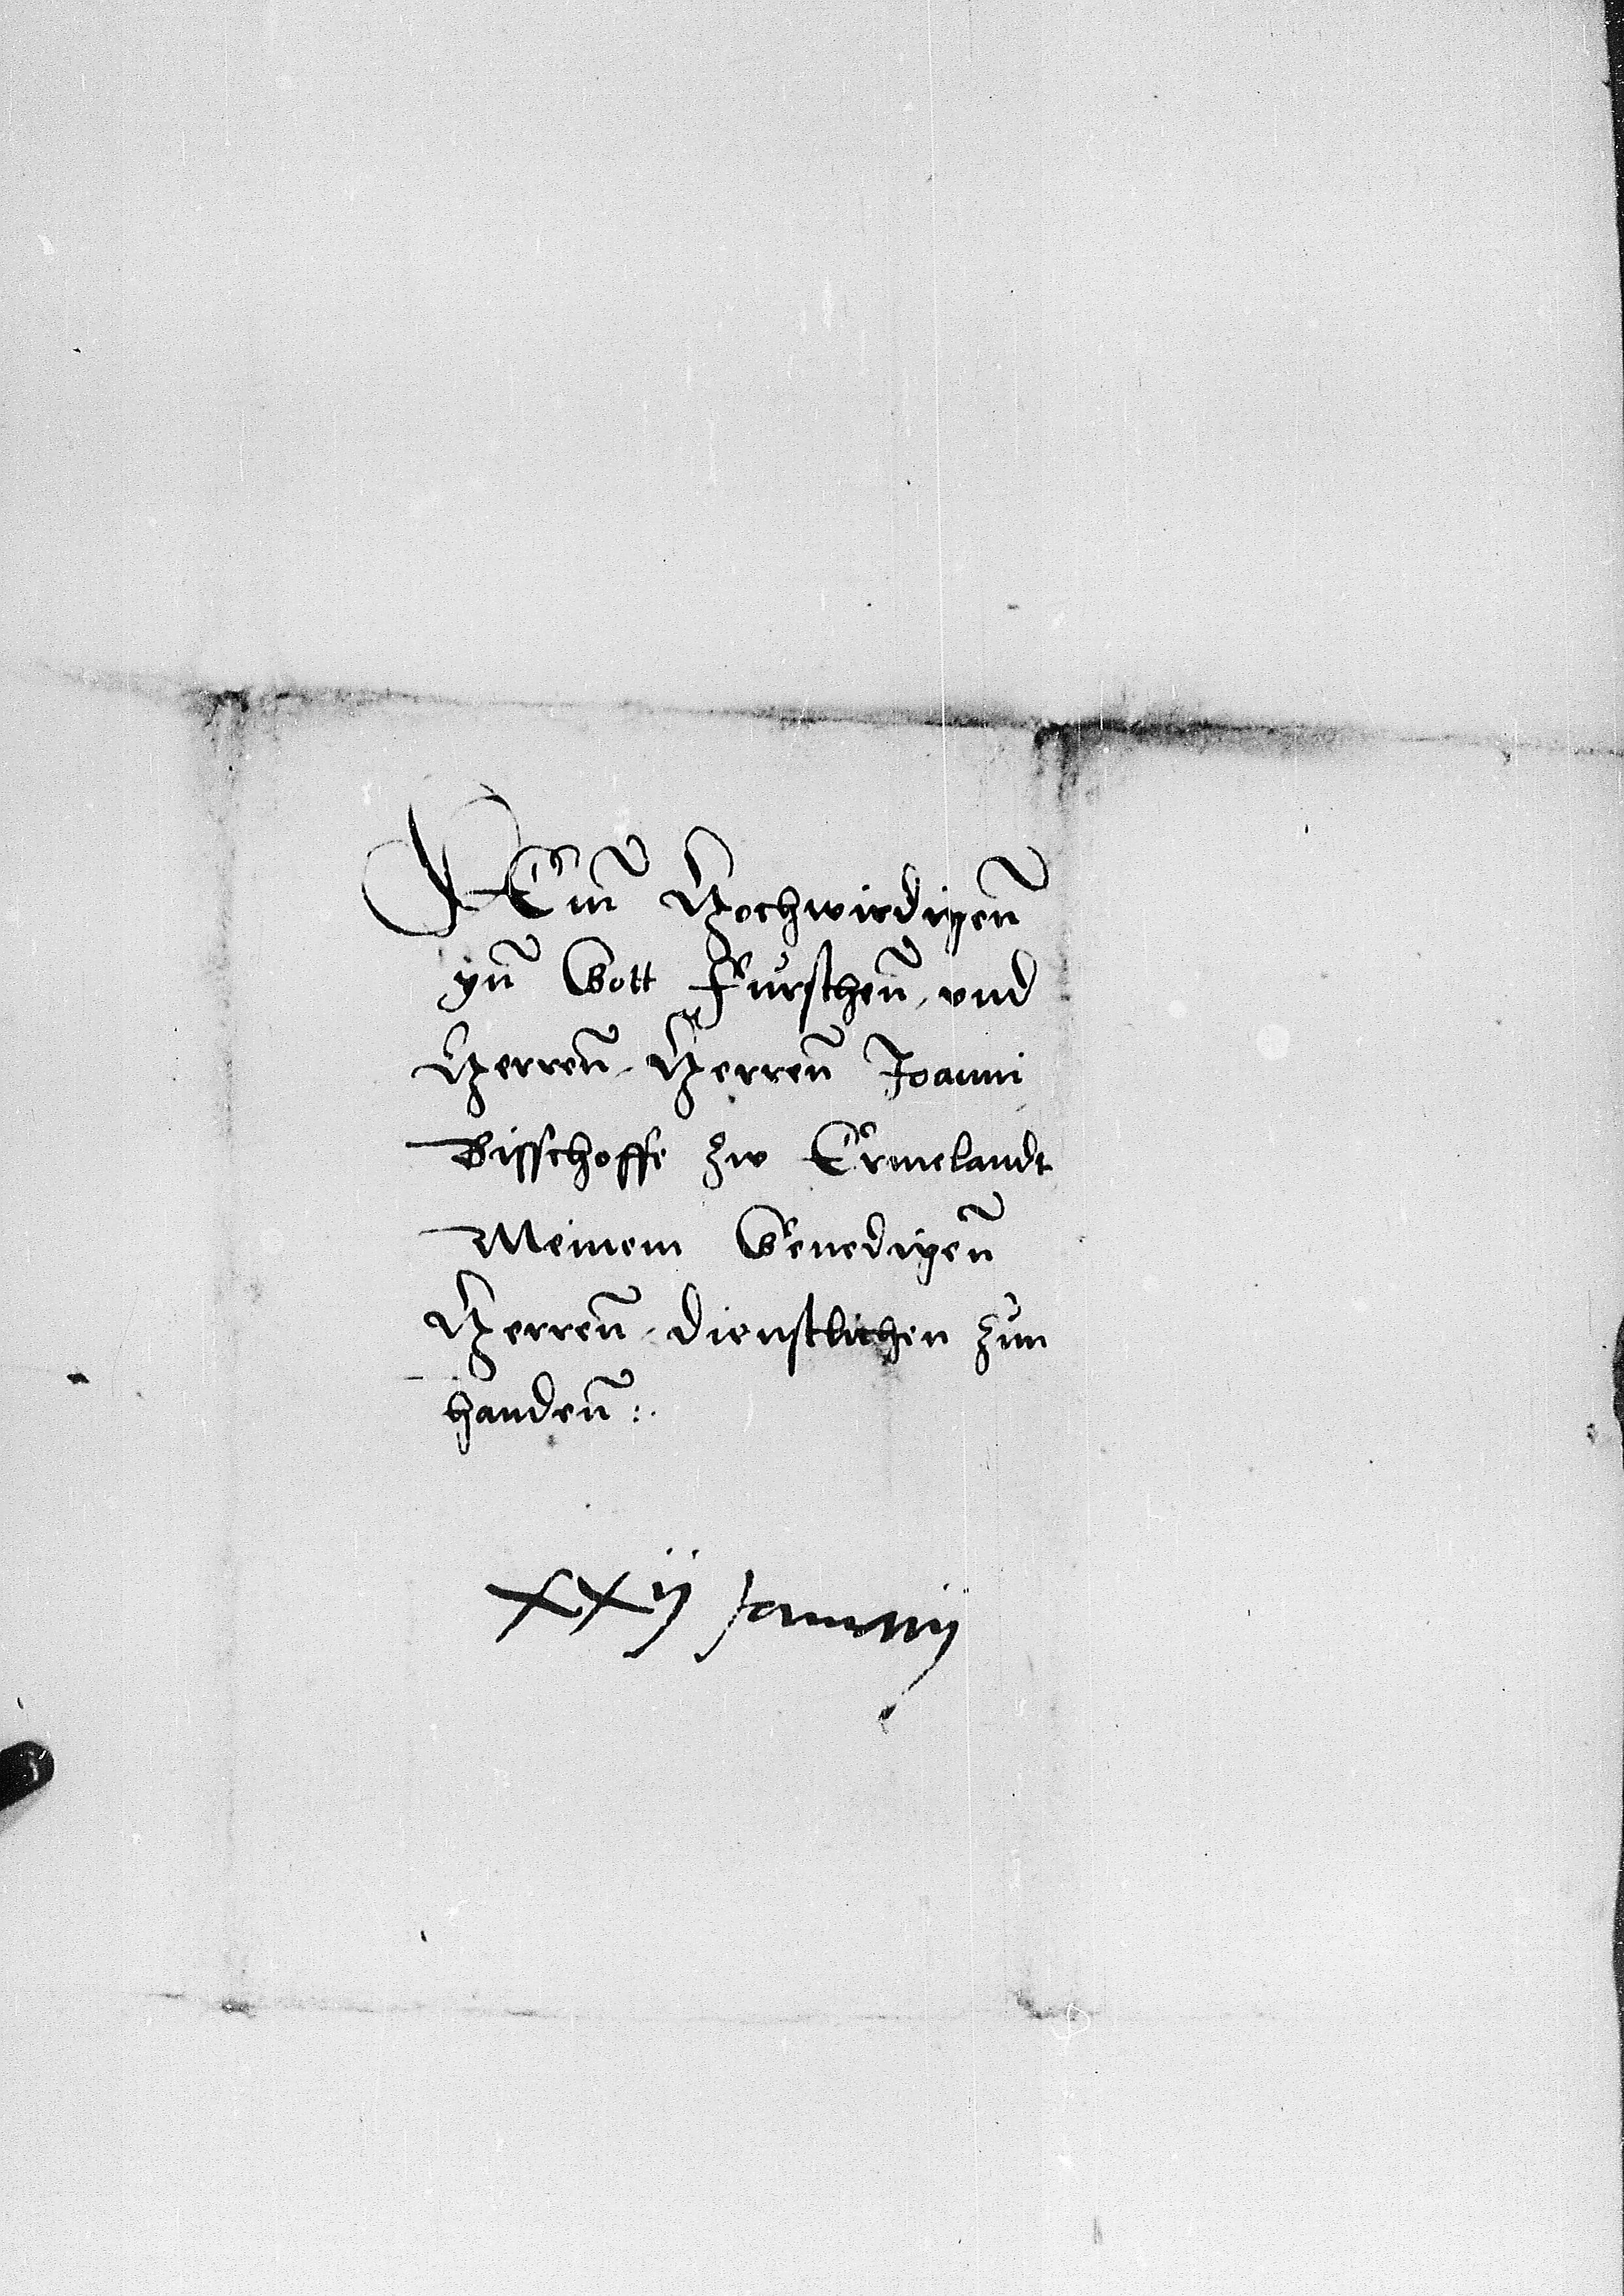 DEm Hochwirdigenn
ynn Gott Furschenn, vnd
Herrenn, Herrenn Joanni
Bisschoffe zw Ermelandt
Meinem Genedigenn
Herrenn, dienstlichen zun
handenn:.
XXij Januarij